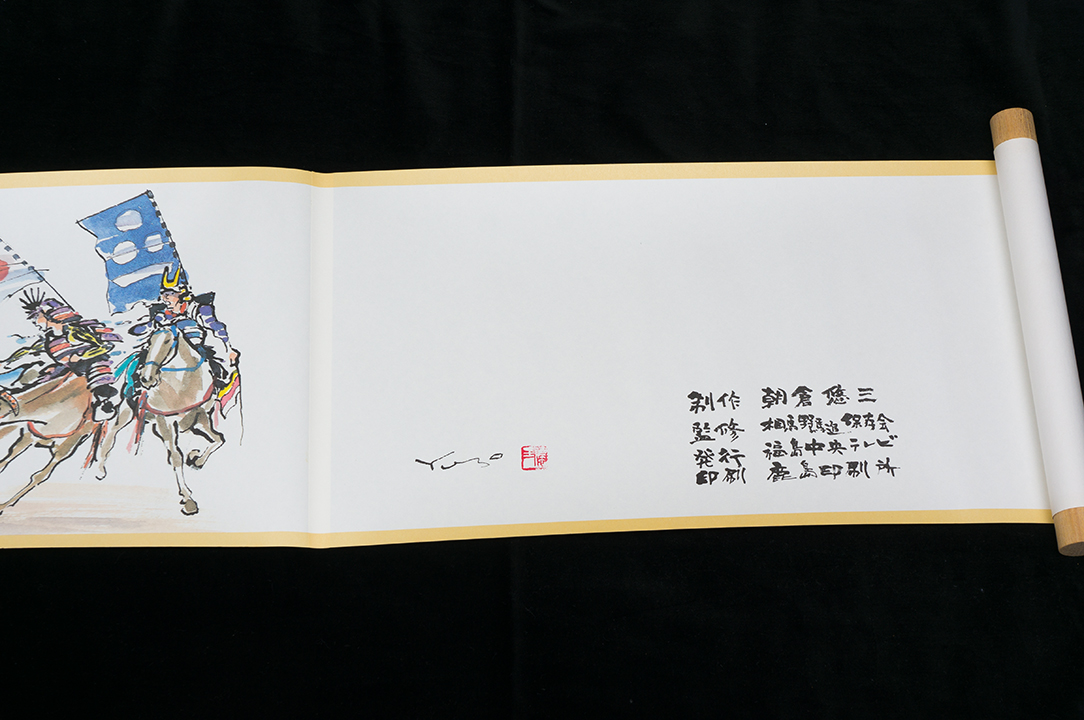 制作 朝倉悠三
監修 相馬野馬追保存会
発行 福島中央テレビ
印刷 鹿島印刷所
Yuzo